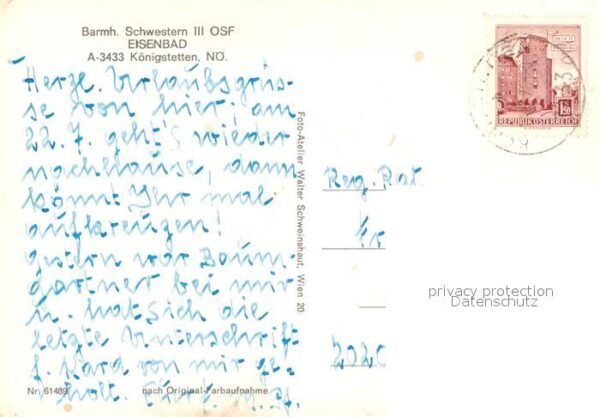 Barmh. Schwestern III OSF
EISENBAD
A-3433 Königstetten, NÖ.
Herzl. Urlaubsgrüs-
se von hier; am
22.7. geht's wieder
nachhause, dann
könnt Ihr mal
aufkreuzen!
Gestern war Baum-
gartner bei mir
u. hat sich die
letzte Unterschrift
f. Kard von mir ge-
holt.
Nr. 61489
nach Original-Farbaufnahme
Foto-Atelier Walter Schweinshaut, Wien 20
REPUBLIK ÖSTERREICH
1.50
Reg. Rat
Fr
2020
privacy protection
Datenschutz